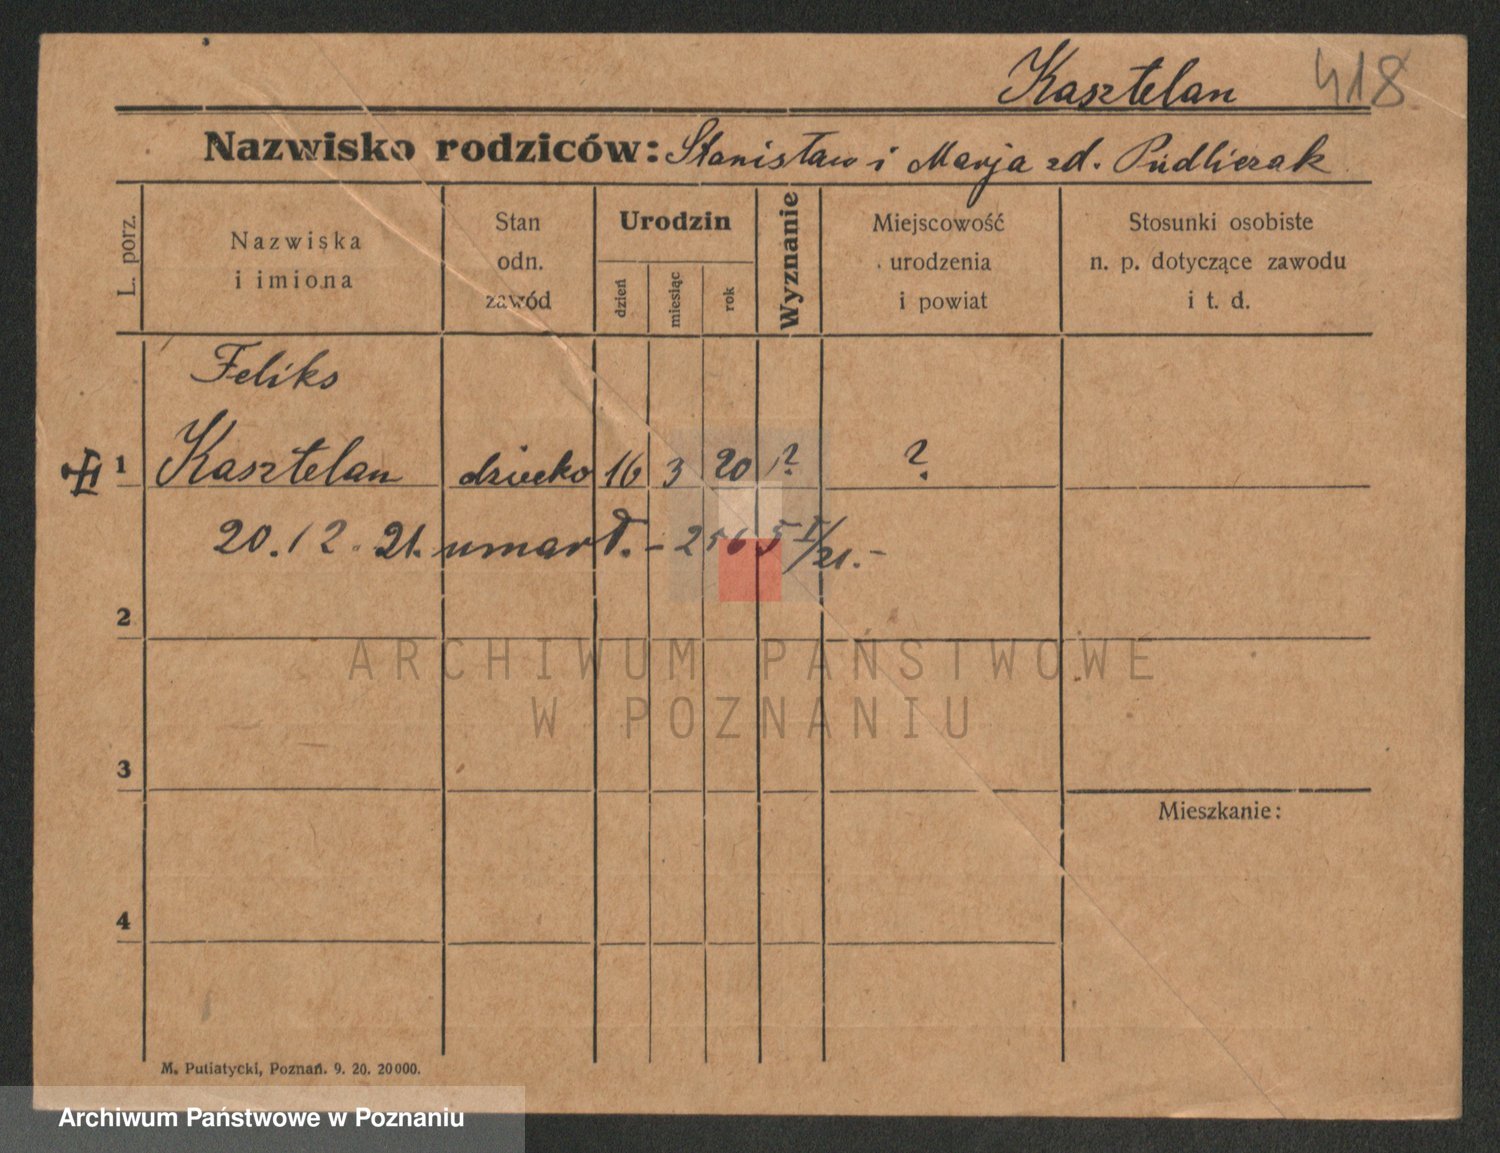 Kasztelan 418
Nazwisko rodziców: Stanisław i Marja zd. Pudliczak
L. porz.
Nazwiska
i imiona
Stan
odn.
zawód
Urodzin
dzień
miesiąc
rok
Wyznanie
Miejscowość
urodzenia
i powiat
Stosunki osobiste
n. p. dotyczące zawodu
i t. d.
Feliks
1 Kasztelan dziecko 16 3 20 ? ?
20.12.21. umarł. - 5 I/21.-
2
3
Mieszkanie:
4
M. Putiatycki, Poznań. 9. 20. 20000.
ARCHIWUM PAŃSTWOWE
W POZNANIU
Archiwum Państwowe w Poznaniu